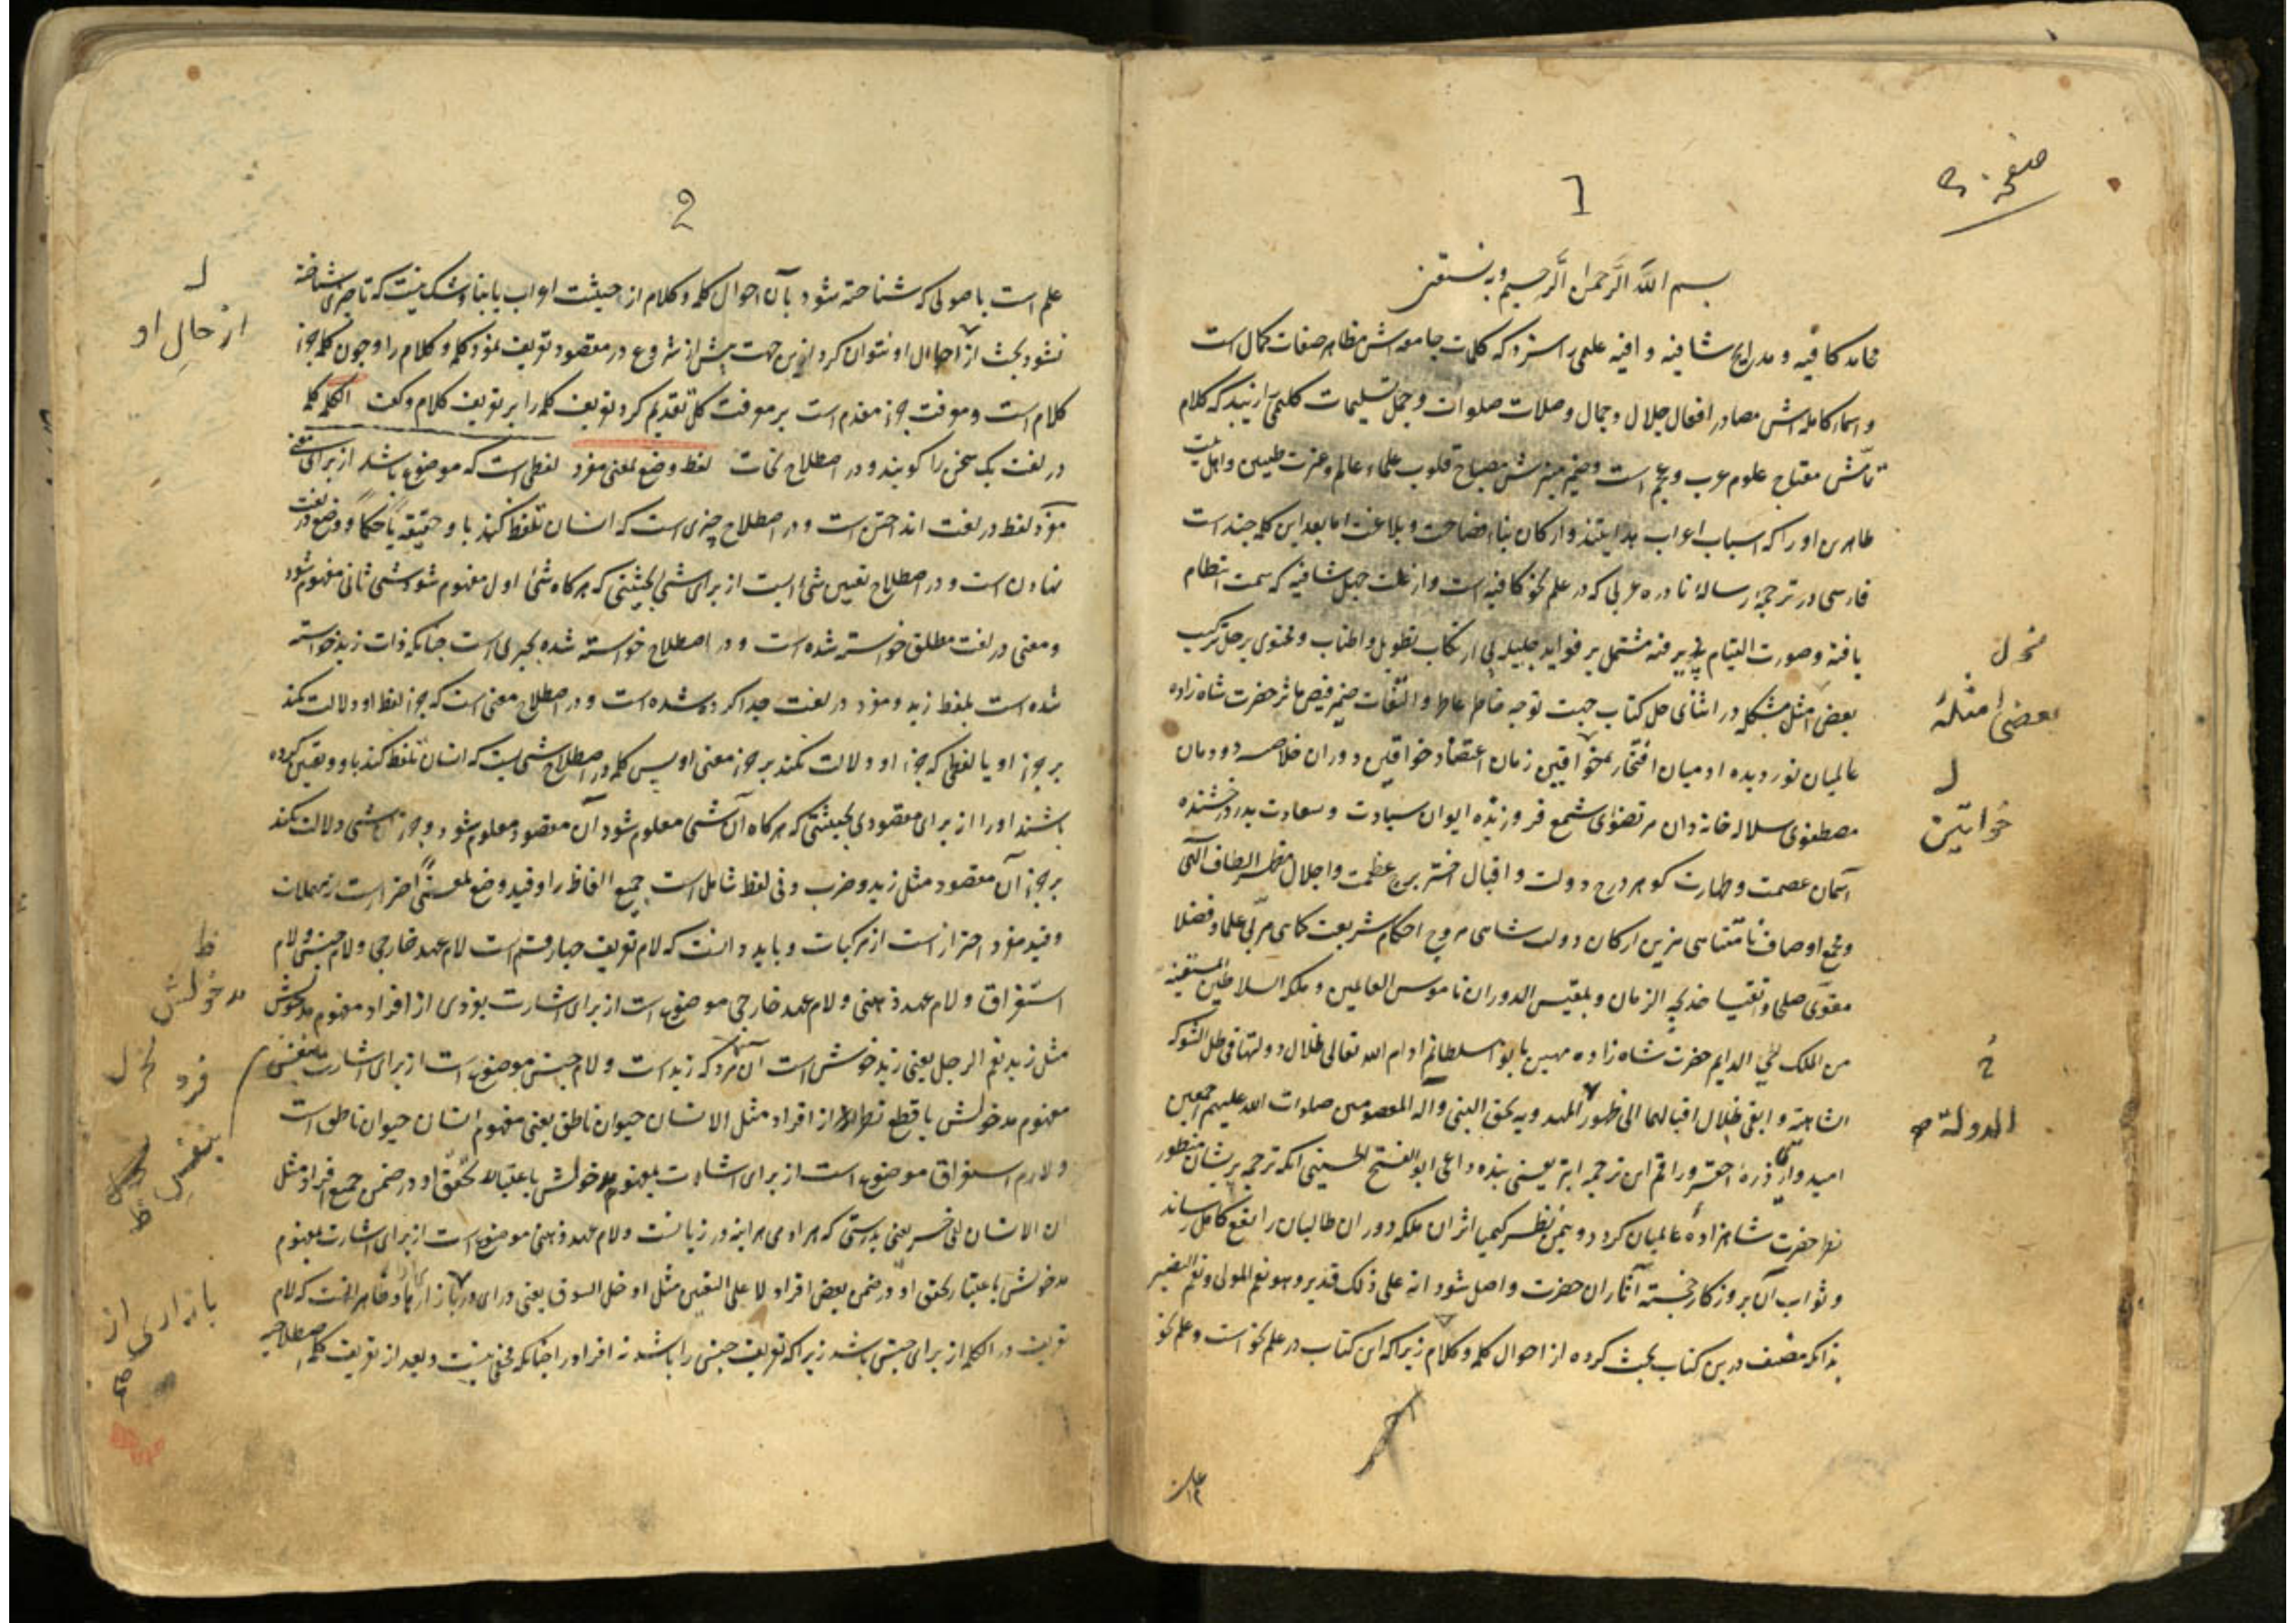 صفحه
1
بسم الله الرَّحمن الرَّحیم وبه نستعین
محامد کافیه و مدایح شافیه و افیه علمی را سزد که کلمات جامعه اش مظاهر صفات کمال است
و اسماء کامله اش مصادر افعال جلال و جمال وصلات صلوات و جمل تسلیمات کلیمی را زیبد که کلام
مفتاح علوم عرب و عجم است و ضمیر منیرش مصباح قلوب علماء عالم و عترت طیبین و اهل بیت
طاهرین او را که اسباب اعراب هدایتند و ارکان بناء فصاحت و بلاغت اما بعد این کلمه چند است
فارسی در ترجمهٔ رسالهٔ نادره عربی که در علم نحو کافیه است و از علت جهل شافیه که سمت انتظام
یافته و صورت التیام پذیرفته مشتمل بر فواید جلیله بی ارتکاب تطویل و اطناب و محتوی بر حل ترکیب
بعض امثل مشکله در اثنای حل کتاب جهت توجه خاطر عاطر و التفات ضمیر فیض مآثر حضرت شاه زاده
عالمیان نور دیده ادمیان افتخار خواقین زمان اعتضاد خواقین دوران خلاصه دودمان
مصطفوی سلاله خاندان مرتضوی شمع فروزنده ایوان سیادت و سعادت بدر درخشنده
آسمان عصمت و طهارت کوهر درج دولت و اقبال اختر برج عظمت و اجلال مظهر الطاف الهی
و مجمع اوصاف نامتناهی مزین ارکان دولت شاهی مروج احکام شریعت کاهی مربّی علما و فضلا
مقوّی صلحا و اتقیا خدیجه الزمان و بلقیس الدوران ناموس العالمین و ملکة السلاطین المستعینه
من الملک الدایم حضرت شاه زاده مهین بانو سلطانم ادام الله تعالی ظلال دولتها فی ظل الشوکه
الشاهیه و ابقی ظلال اقبالهما الی ظهور المهدی بحق النبی و آله المعصومین صلوات الله علیهم اجمعین
امیدوار ذرهٔ احقر و راقم این ترجمه ابتر یعنی بنده داعی ابو الفتح الحسینی انکه ترجمه پریشان منظور
نظر حضرت شاهزادهٔ عالمیان کردد و بیمن نظر کیمیا اثر ان ملکه دوران طالبان را نفع کامل رساند
و ثواب آن بروزکار خجسته آثار ان حضرت واصل شود انه علی ذلک قدیر و هو نعم المولی و نعم النصیر
بدانکه مصنف درین کتاب بحث کرده از احوال کلمه و کلام زیرا که این کتاب در علم نحو است و علم نحو
بعضی امثلهٔ
خواتین
الدولة صح
2
علم است باصولی که شناخته شود بآن احوال کلمه و کلام از حیثیت اعراب یا بنا و شک نیست که تا چیزی شناخته
نشود بحث از احوال او نتوان کرد ازین جهت پیش از شروع در مقصود تعریف نمود کلمه و کلام را و چون کلمه جزء
کلام است و معرفت جزء مقدم است بر معرفت کل تقدیم کرد تعریف کلمه را بر تعریف کلام و کفت الکلمه کلمه
در لغت یک سخن را کویند و در اصطلاح نحات لفظ وضع لمعنی مفرد لفظی است که موضوع باشد از برای معنی
مفرد لفظ در لغت انداختن است و در اصطلاح چیزی است که انسان تلفظ کند باو حقیقة یا حکماً و وضع در لغت
نهادن است و در اصطلاح تعیین شئ است از برای شئ بحیثیتی که هرکاه شئ اول مفهوم شود شئ ثانی مفهوم شود
و معنی در لغت مطلق خواسته شده است و در اصطلاح خواسته شده بچیزی است چنانکه ذات زید خواسته
شده است بلفظ زید و مفرد در لغت جدا کرده شده است و در اصطلاح معنی است که جزء لفظ او دلالت نکند
بر جزء او یا لفظی که جزء او دلالت نکند بر جزء معنی او پس کلمه در اصطلاح شئ است که انسان تلفظ کند باو و تعیین کرده
باشند او را از برای مقصودی بحیثیتی که هرکاه آن شئ معلوم شود آن مقصود معلوم شود و جزء آن شئ دلالت نکند
بر جزء آن مقصود مثل زید و ضرب و فی لفظ شامل است جمیع الفاظ را و قید وضع لمعنی احتراز است از مهملات
و قید مفرد احتراز است از مرکبات و باید دانست که لام تعریف چهار قسم است لام عهد خارجی و لام جنس و لام
استغراق و لام عهد ذهنی و لام عهد خارجی موضوع است از برای اشارت بفردی از افراد مفهوم مدخولش
مثل زید نعم الرجل یعنی زید خوش است آن مرد که زید است و لام جنس موضوع است از برای اشارت بنفس
مفهوم مدخولش با قطع نظر از افراد مثل الانسان حیوان ناطق یعنی مفهوم انسان حیوان ناطق است
و لام استغراق موضوع است از برای اشارت بمفهوم مدخولش باعتبار تحقق او در ضمن جمیع افراد مثل
ان الانسان لفی خسر یعنی بدرستی که هر ادمی هراینه در زیانست و لام عهد ذهنی موضوع است از برای اشارت بمفهوم
مدخولش باعتبار تحقق او در ضمن بعض افراد لا علی التعیین مثل ادخل السوق یعنی درای در بازار و ظاهر انست که لام
تعریف در الکلمه از برای جنس باشد زیرا که تعریف جنس را باشد نه افراد را چنانکه مخفی نیست و بعد از تعریف کلمه اصطلاحیه
از حالِ او
مدخولش
فرد
بنفسِ
بازاری از